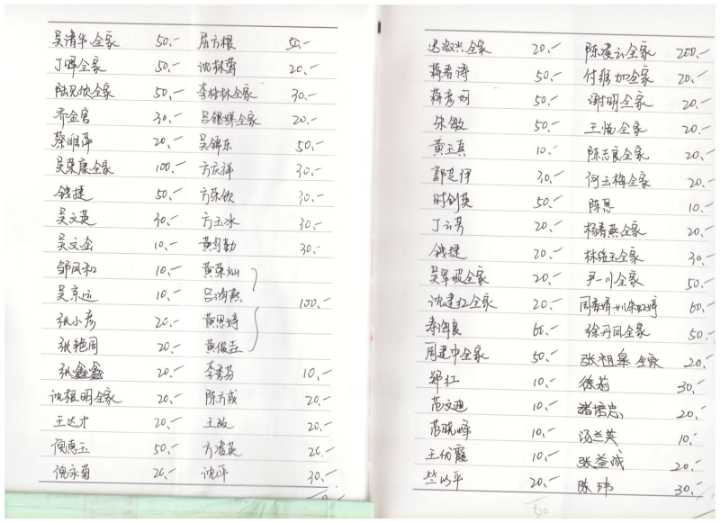 吴清华全家 50.- 屈方根 50.-
丁晔全家 50.- 沈林莺 20.-
陆兄欣全家 50.- 李林林全家 30.-
乔金宝 30.- 吕银娣全家 20.-
蔡明萍 20.- 吴锦东 50.-
吴荣康全家 100.- 方庆祥 30.-
钱捷 50.- 方荣钦 30.-
吴文英 30.- 方玉冰 30.-
吴文金 10.- 黄月勤 30.-
邹凤和 10.- 黄荣灿
吴京运 10.- 吕海燕 100.-
张小彦 20.- 黄思婷
张艳周 20.- 黄俊垚
张鑫鑫 20.- 李秀芬 10.-
沈根明全家 20.- 陈方成 20.-
王达才 20.- 王敏 20.-
倪惠玉 50.- 方清英 20.-
倪永菊 20.- 沈萍 30.-
全家 20.- 陈凌云全家 200.-
蒋春涛 50.- 付根加全家 20.-
蒋秀娟 50.- 谢明全家 20.-
朱敏 50.- 王怡全家 20.-
黄亚真 10.- 陈志良全家 20.-
郭芝伊 30.- 何玉梅全家 20.-
时剑英 50.- 陈恩 10.-
丁云芳 20.- 杨青燕全家 20.-
钱捷 20.- 林维玉全家 30.-
全家 20.- 尹一川全家 50.-
沈建红全家 20.- 周春婷 60.-
60.- 徐丹凤全家 50.-
周建中全家 50.- 张祖泉全家 20.-
郑红 10.- 徐莉 30.-
范文迪 10.- 诸培忠 20.-
范晓峰 10.- 汤兰英 10.-
王伯霞 10.- 张益成 20.-
竺以平 20.- 陈玮 30.-